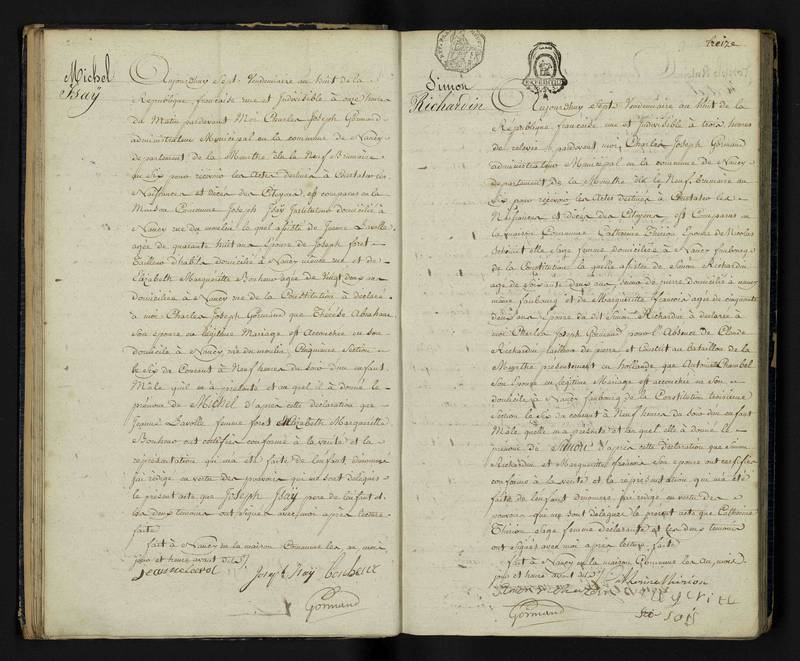 Michel
Isaÿ
Aujourd'huy Sept Vendemiaire an huit de la
République francaise une et Indivisible à onze heures
du Matin pardevant Moi Charles Joseph Gormand
administrateur Municipal en la commune de Nancy
departement de la Meurthe élu le Neuf Brumaire
an Six pour recevoir les Actes destinés à Constater les
Naissances et décès des Citoyens, est comparu en la
Maison Commune Joseph Isaÿ Instituteur domicilié à
Nancy rue du moulin le quel assisté de Jeanne Lavolle
agée de quarante huit ans Epouse de Joseph foret
tailleur d'habits domicilié à Nancy même rue et de
Elizabeth Marguerite Bonheur agée de Vingt deux ans
domiciliée à Nancy rue de la Constitution à déclaré
à moi Charles Joseph Gormand que Thérése Abraham
Son épouse en légitime Mariage est Accouchée en son
domicile à Nancy rue du moulin Cinquieme Section
le Six du Courant à Neuf heures du soir d'un enfant
Mâle qu'il m'a présenté et au quel il à donné le
prénom de Michel d'après cette déclaration que
Jeanne Lavolle femme foret Elizabeth Marguerite
Bonheur ont certifiée conforme à la verité et la
représentation qui m'a été faite de l'enfant dénommé
j'ai rédigé en vertu des pouvoirs qui me sont délegués
le présent acte que Joseph Isaÿ pere de l'enfant et
les deux temoins ont signés avec moi après lecture
faite
fait à Nancy en la maison Commune les an mois
jour et heure avant dits
Joseph Isaÿ bonheur
Gormand
treize
Simon
Richardin
Aujourd'huy Sept Vendemiaire an huit de la
République francaise une et Indivisible à trois heures
de relevée pardevant moi Charles Joseph Gormand
administrateur Municipal en la commune de Nancy
departement de la Meurthe élu le Neuf brumaire an
Six pour recevoir les Actes destinés à Constater les
Naissances et décès des Citoyens, est Comparue en
la maison Commune Catherine Thirion Epouse de Nicolas
Sage femme domiciliée à Nancy faubourg
de la Constitution la quelle assistée de Simon Richardin
agé de Soixante deux ans de pierre domicilié à Nancy
même faubourg et de Marguerite francois agée de cinquante
deux ans Epouse du dit Simon Richardin à déclarée à
moi Charles Joseph Gormand pour l'Absence de Claude
Richardin tailleur de pierre et au Bataillon de la
Meurthe présentement en hollande que Antoinette
Son Epouse en légitime Mariage est accouchée en Son
domicile à Nancy faubourg de la Constitution troisieme
Section le Six du courant à Neuf heures du soir d'un enfant
Mâle qu'elle m'a présenté et au quel elle à donné le
prénom de Simon D'après cette Déclaration que Simon
Richardin et Marguerite francois Son epouse ont certifiée
conforme à la verité et la représentation qui m'a été
faite de l'enfant denommé j'ai rédigé en vertu des
pouvoirs qui me sont délegués le présent acte que Catherine
Thirion Sage femme déclarante et les deux temoins
ont signés avec moi après lecture faite
fait à Nancy en la maison Commune les an mois
jour et heure avant dits
Catherine Thirion
Gormand